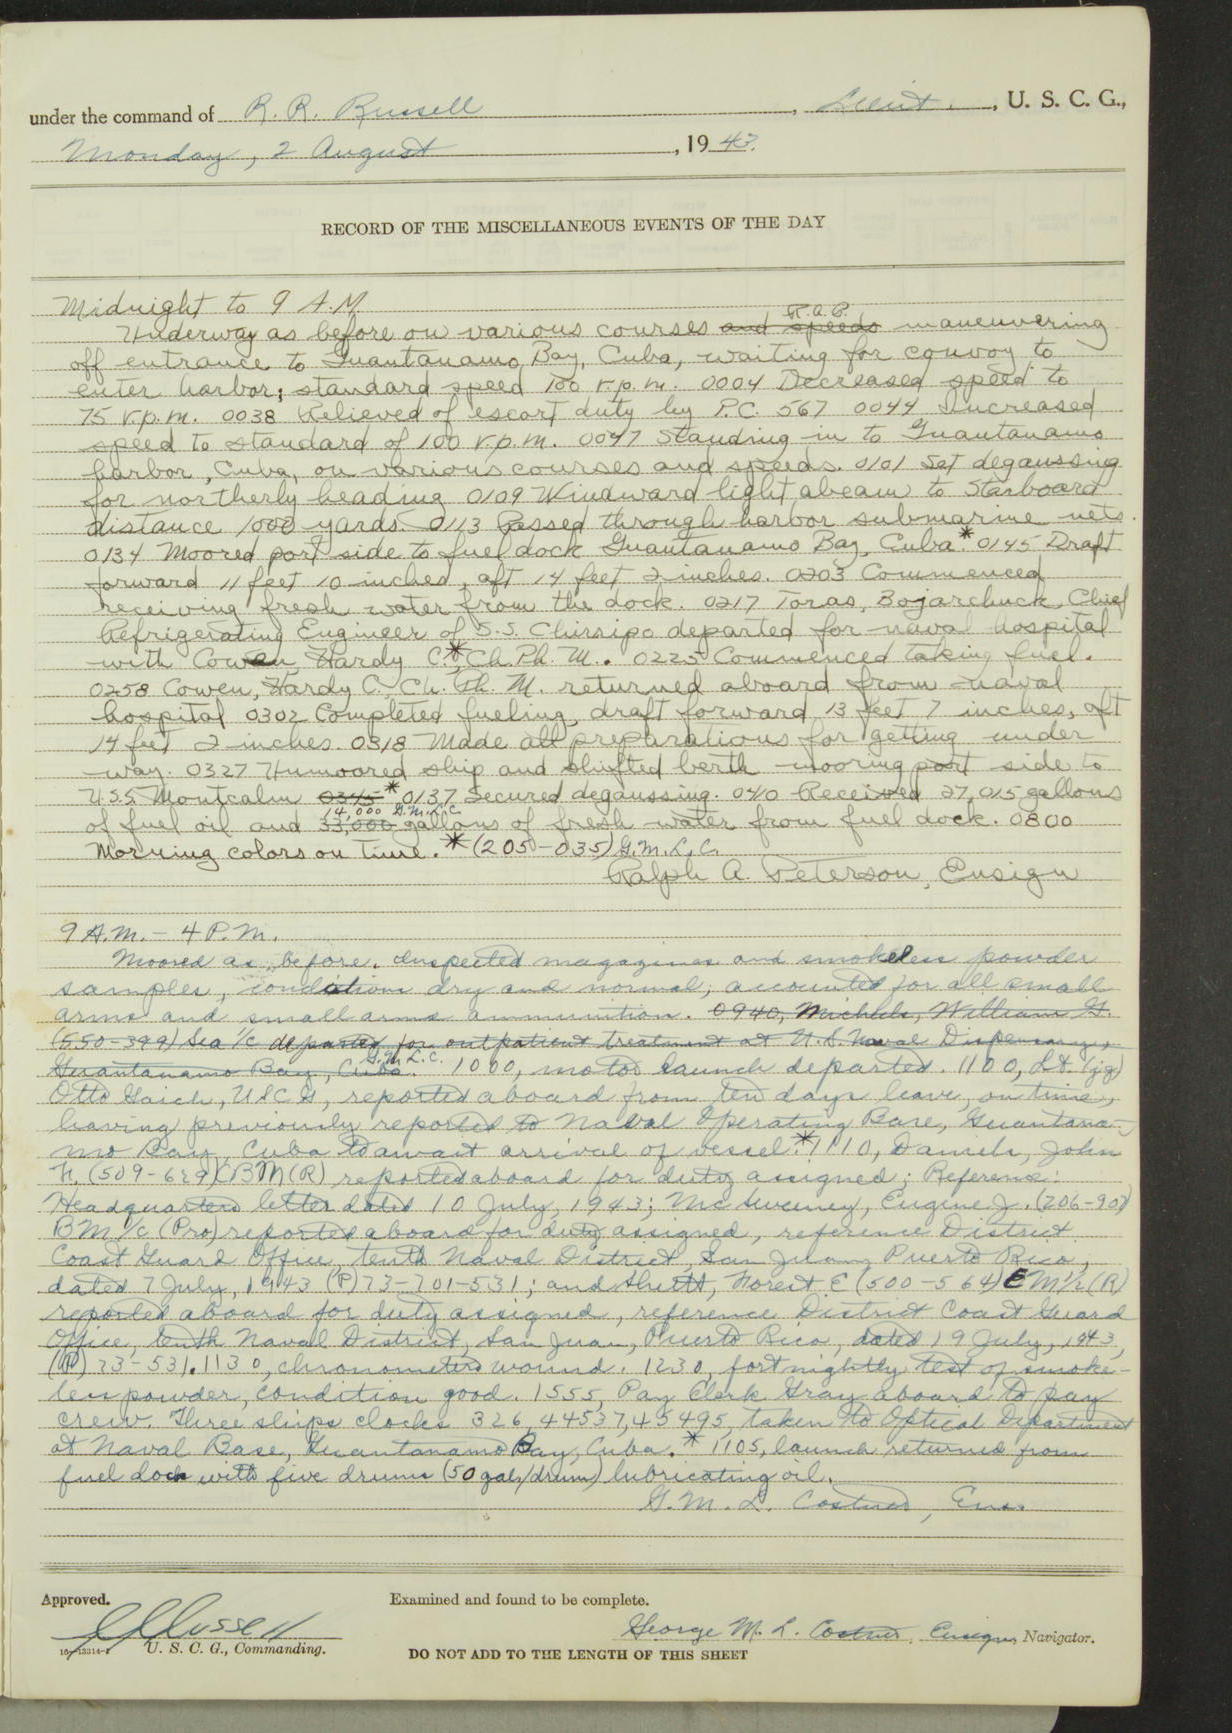 under the command of R. R. Russell, Lieut., U. S. C. G.,
Monday, 2 August, 1943.
RECORD OF THE MISCELLANEOUS EVENTS OF THE DAY
Midnight to 9 A.M.
R.A.P.
Underway as before on various courses and speeds maneuvering
off entrance to Guantanamo Bay, Cuba, waiting for convoy to
enter harbor; standard speed 100 r.p.m. 0004 Decreased speed to
75 r.p.m. 0038 Relieved of escort duty by P.C. 567 0044 Increased
speed to standard of 100 r.p.m. 0047 Standing in to Guantanamo
harbor, Cuba, on various courses and speeds. 0101 Set degaussing
for northerly heading 0109 Windward light abeam to Starboard
distance 1000 yards. 0113 Passed through harbor submarine nets.
0134 Moored port side to fuel dock Guantanamo Bay, Cuba.* 0145 Draft
forward 11 feet 10 inches, aft 14 feet 2 inches. 0203 Commenced
receiving fresh water from the dock. 0217 Toras, Bojarchuck, Chief
Refrigerating Engineer of S.S. Chirripo departed for naval hospital
with Cowen, Hardy C.*, Ch. Ph. M. 0225 Commenced taking fuel.
0258 Cowen, Hardy C., Ch. Ph. M. returned aboard from naval
hospital 0302 Completed fueling, draft forward 13 feet 7 inches, aft
14 feet 2 inches. 0318 Made all preparations for getting under
way. 0327 Unmoored ship and shifted berth mooring port side to
U.S.S. Montcalm 0345 * 0137 Secured degaussing. 040 Received 27,015 gallons
14,000 G.M.L.C.
of fuel oil and 33,000 gallons of fresh water from fuel dock. 0800
Morning colors on time. * (205-035) G.M.L.C.
Ralph A. Peterson, Ensign
9 A.M. - 4 P.M.
Moored as before. Inspected magazines and smokeless powder
samples, conditions dry and normal; accounted for all small
arms and small arms ammunition. 0940, Michels, William G.
(550-399) Sea 1/c departed for outpatient treatment at U.S. Naval Dispensary,
G.M.L.C.
Guantanamo Bay, Cuba. 1000, motor launch departed. 1100, Lt. (jg)
Otto Gaich, USCG, reported aboard from ten days leave, on time,
having previously reported to Naval Operating Base, Guantana-
mo Bay, Cuba to await arrival of vessel.* 1110, Daniels, John
F. (509-629) CBM(R) reported aboard for duty assigned; Reference:
Headquarters letter dated 10 July, 1943; McSweeney, Eugene J. (206-908)
BM1/c (Pro) reported aboard for duty assigned, reference District
Coast Guard Office, tenth Naval District, San Juan, Puerto Rico,
dated 7 July, 1943 (P) 73-701-531; and Shutt, Forest E (500-564) EM1/c (R)
reported aboard for duty assigned, reference District Coast Guard
Office, tenth Naval District, San Juan, Puerto Rico, dated 19 July, 1943,
(P) 73-531. 1130, chronometers wound. 1230, fortnightly test of smoke-
less powder, condition good. 1555, Pay Clerk Gray aboard to pay
crew. Three ships clocks 326, 44537, 45495, taken to Optical Department
at Naval Base, Guantanamo Bay, Cuba. * 1105, launch returned from
fuel dock with five drums (50 gals/drum) lubricating oil.
G. M. L. Costner, Ens.
Approved.
Examined and found to be complete.
George M. L. Costner, Ensign, Navigator.
U. S. C. G., Commanding.
DO NOT ADD TO THE LENGTH OF THIS SHEET